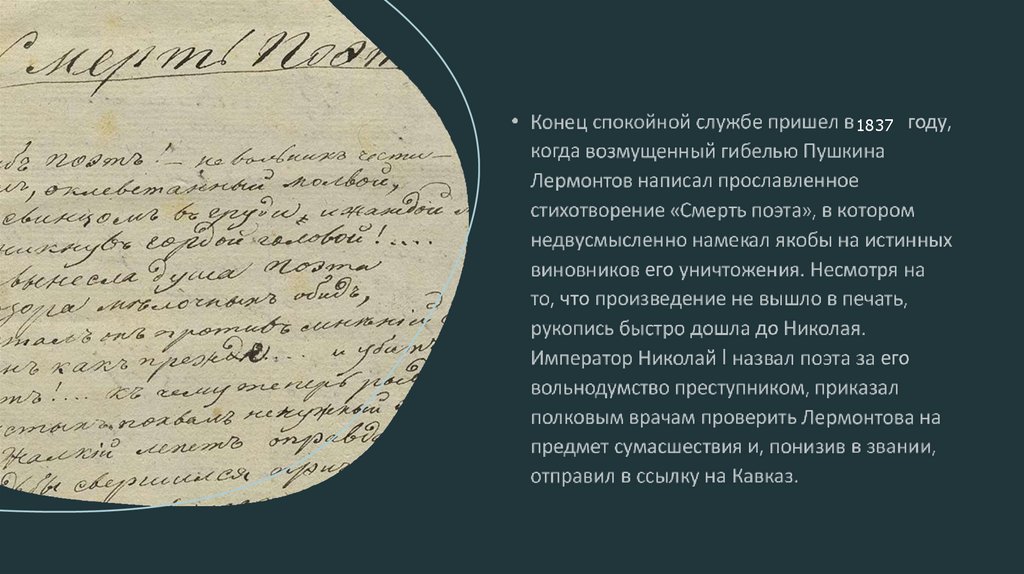 Смерть Поэт
поэтъ! — невольникъ чести —
оклеветанный молвой,
свинцомъ въ груди и жаждой
никнувъ гордой головой!....
вынесла душа поэта
мѣлочныхъ обидъ,
онъ противъ мнѣній
какъ прежде.... и убитъ
къ чему теперь рыд
похвалъ ненужный
Жалкій лепетъ оправда
свершился при
• Конец спокойной службе пришел в 1837 году,
когда возмущенный гибелью Пушкина
Лермонтов написал прославленное
стихотворение «Смерть поэта», в котором
недвусмысленно намекал якобы на истинных
виновников его уничтожения. Несмотря на
то, что произведение не вышло в печать,
рукопись быстро дошла до Николая.
Император Николай I назвал поэта за его
вольнодумство преступником, приказал
полковым врачам проверить Лермонтова на
предмет сумасшествия и, понизив в звании,
отправил в ссылку на Кавказ.